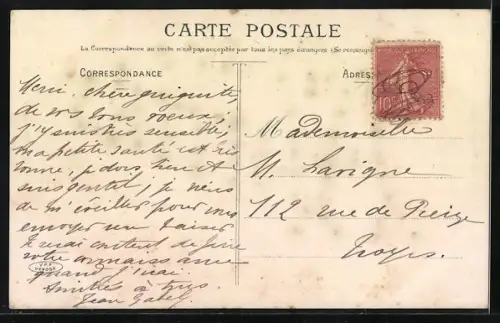 CARTE POSTALE
La Correspondance au verso n'est pas acceptée par tous les pays étrangers (Se renseigner
CORRESPONDANCE
ADRES
10
Merci, chère
de vos bons voeux;
j'y suis très sensible,
ma petite santé est très
bonne, je dors bien et
suis gentil, je viens
de m'éveiller pour vous
envoyer un baiser
Je serai content de faire
votre connaissance
quand j'irai.
Amitiés à tous.
Jean
Mademoiselle
M. Lavigne
112 rue de
Troyes.